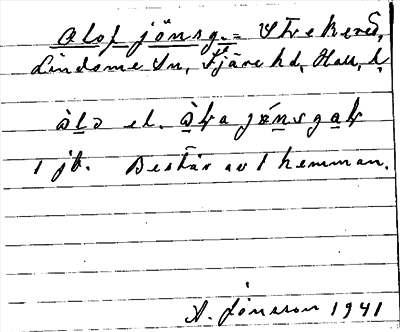 Olof jönsg. = Strekered,
Lindome Sn, Fjäre hd, Hall. l.
àlɔ el. jónsgaɼ
1 jb. Består av 1 hemman.
A. Jönsson 1941